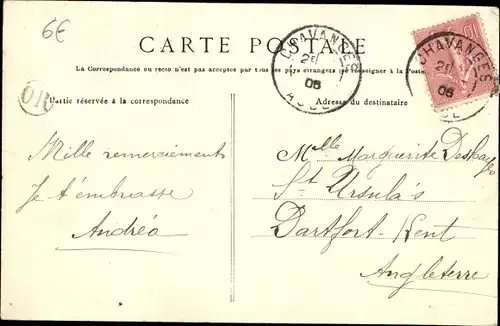 6€
CARTE POSTALE
La Correspondance au recto n'est pas acceptée par tous les pays étrangers (se renseigner à la Poste)
CHAVANGES
2E
06
AUBE
CHAVANGES
2E
06
OR
Partie réservée à la correspondance
Adresse du destinataire
Mille remerciements
Je t'embrasse
Andréa
Mlle Marguerite
St Ursula's
Dartfort-Kent
Angleterre